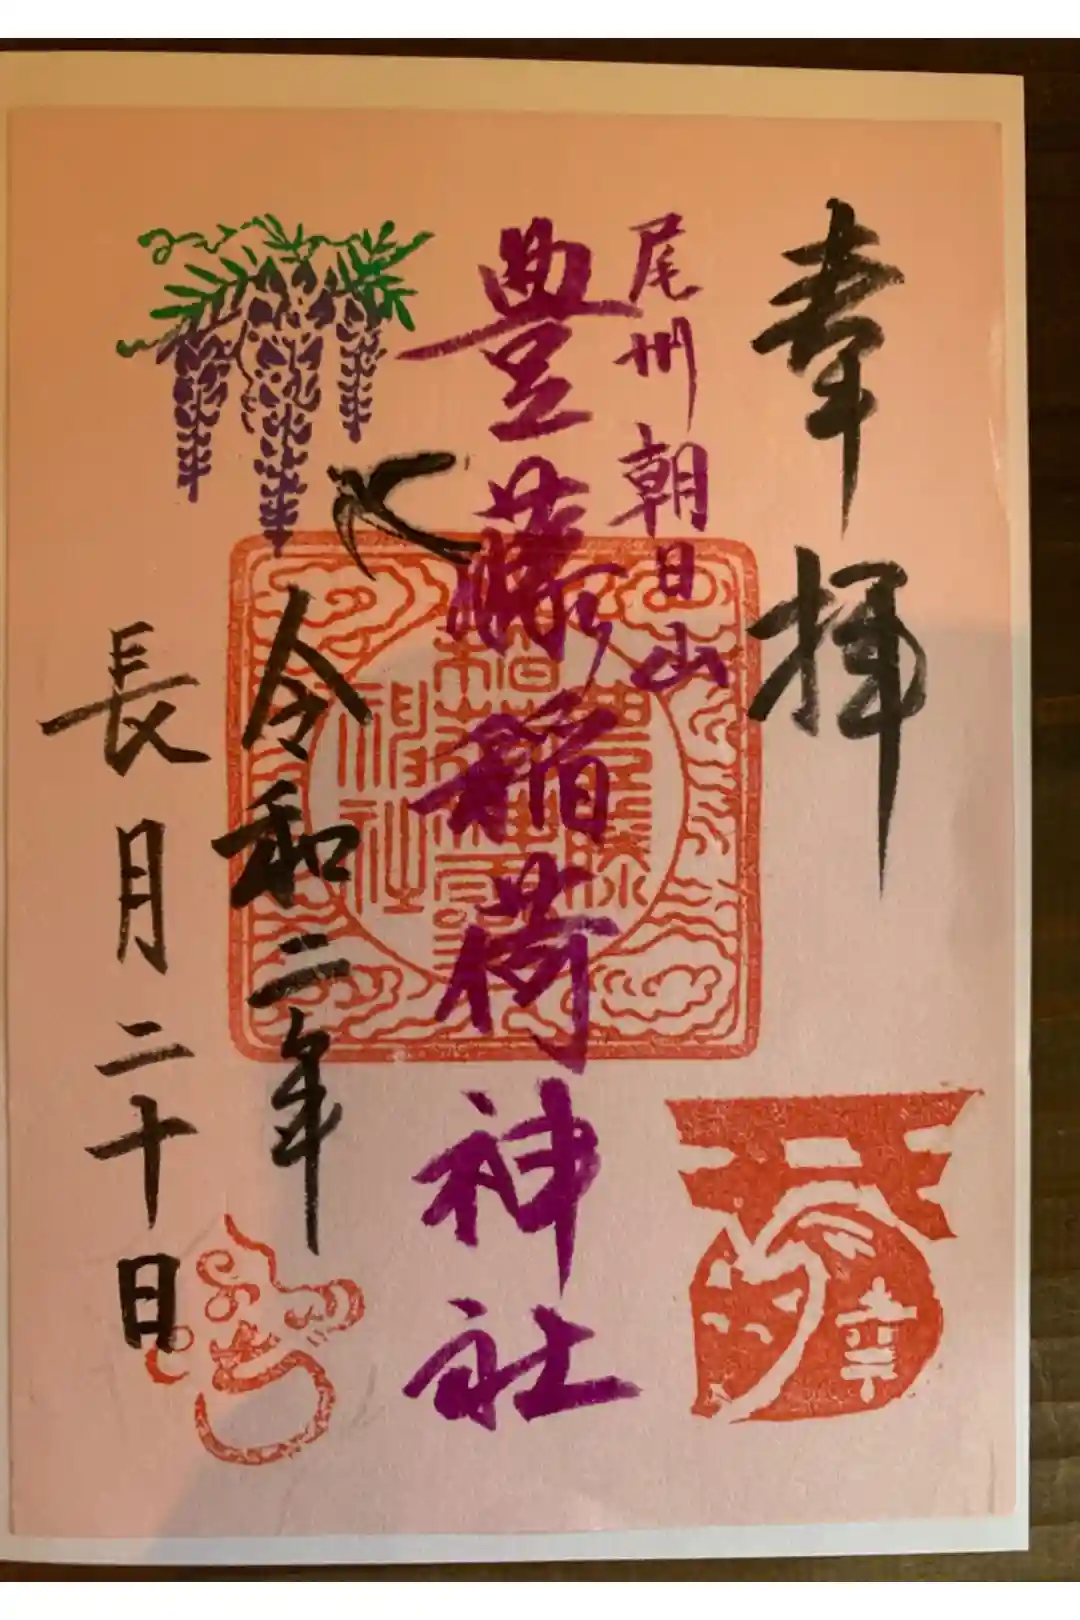 奉拝
尾州朝日山
豊藤稲荷神社
令和二年
長月二十日
幸